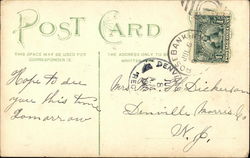 POST CARD
THIS SPACE MAY BE USED FOR
CORRESPONDENCE.
THE ADDRESS ONLY TO BE
Hope to see
you this time
tomorrow
Mrs. H. Dickerson
Denville, Morris Co.
N. J.